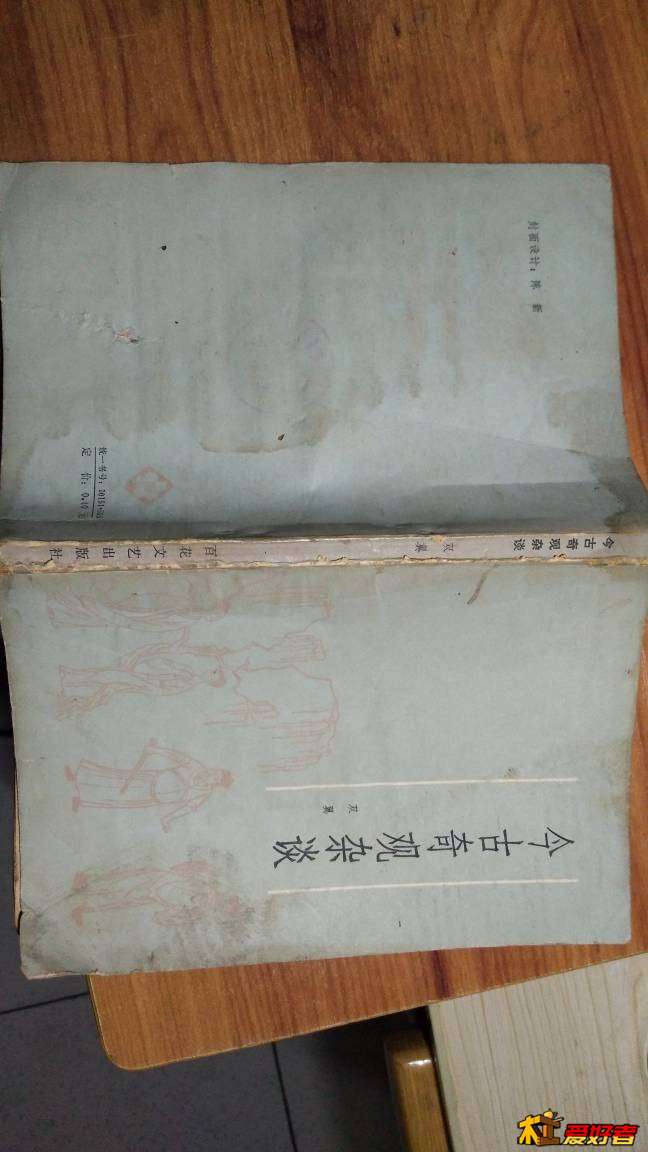 今古奇观杂谈
双翼
今古奇观杂谈 双翼 百花文艺出版社
封面设计：陈新
统一书号：
定价：
爱好者